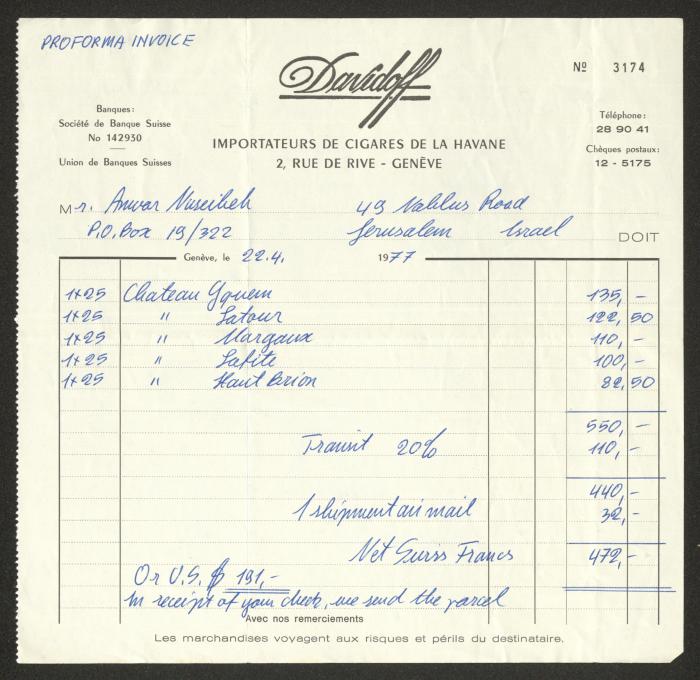 PROFORMA INVOICE
Davidoff
Nº 3174
Banques:
Société de Banque Suisse
No 142930
Union de Banques Suisses
IMPORTATEURS DE CIGARES DE LA HAVANE
2, RUE DE RIVE - GENÈVE
Téléphone:
28 90 41
Chèques postaux:
12 - 5175
Mr. Anwar Nuseibeh 49 Nablus Road
P.O. Box 19/322 Jerusalem Israel DOIT
Genève, le 22.4. 1977
1x25 Chateau Yquem 135,-
1x25 " Latour 122,50
1x25 " Margaux 110,-
1x25 " Lafite 100,-
1x25 " Haut Brion 82,50
550,-
Transit 20% 110,-
440,-
1 shipment air mail 32,-
Net Swiss Francs 472,-
Or U.S. $ 191,-
In receipt of your check, we send the parcel
Avec nos remerciements
Les marchandises voyagent aux risques et périls du destinataire.